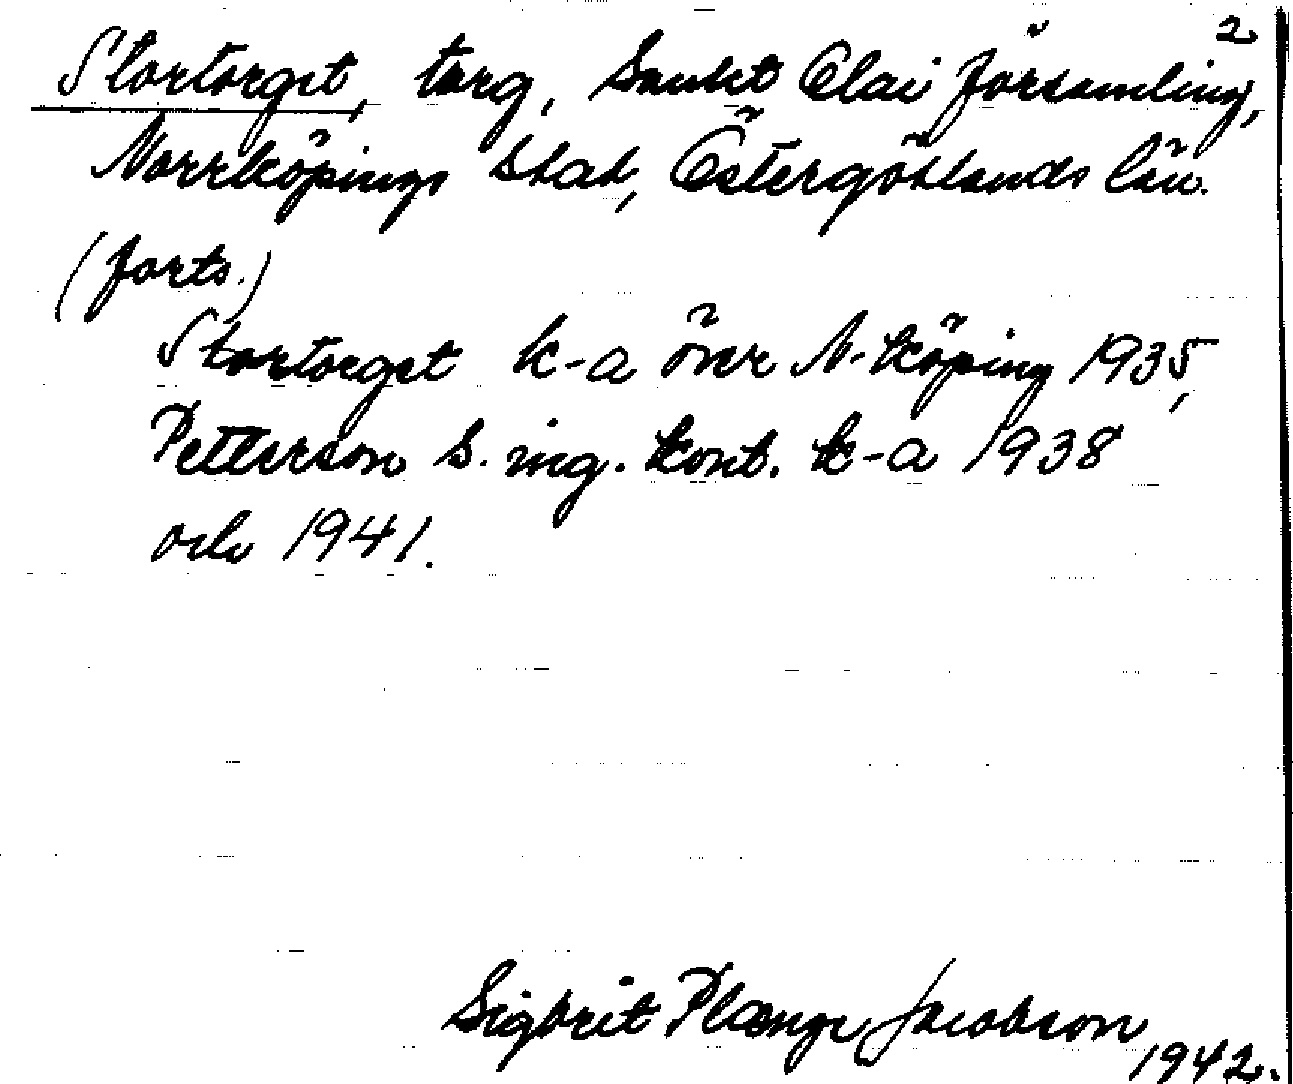 2
Stortorget, torg, Sankt Olai församling,
Norrköpings stad, Östergötlands län.
(forts.)
Stortorget k-a över N-köping 1935,
Petterson s. ing. kont. k-a 1938
och 1941.
Sigbrit Plænge Jacobson
1942.